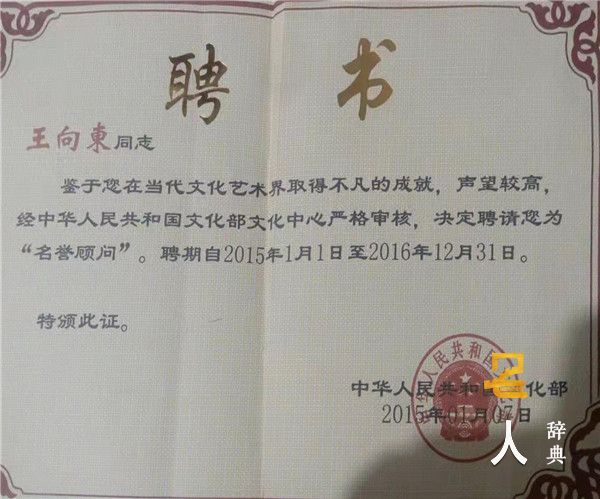 聘书
王向東同志
鉴于您在当代文化艺术界取得不凡的成就，声望较高，
经中华人民共和国文化部文化中心严格审核，决定聘请您为
“名誉顾问”。聘期自2015年1月1日至2016年12月31日。
特颁此证。
中华人民共和国文化部
2015年01月07日
名人辞典